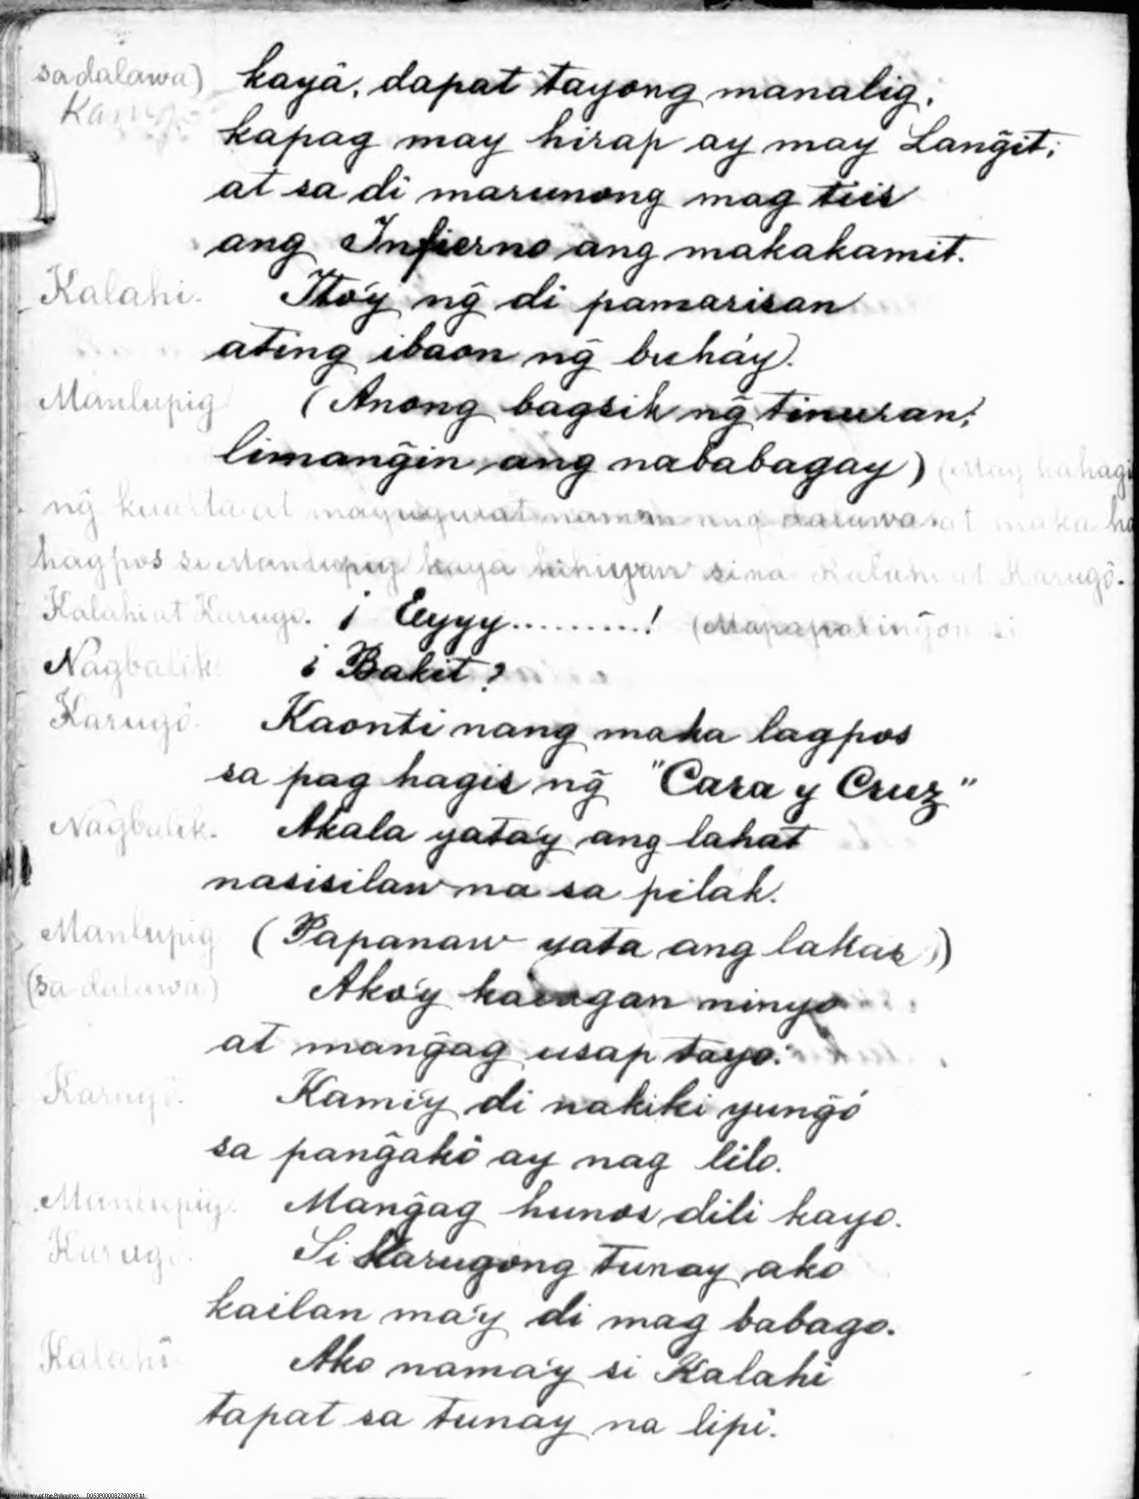 sa dalawa) kayâ, dapat tayong manalig,
kapag may hirap ay may Lang̃it;
at sa di marunong mag tiis
ang Infierno ang makakamit.
Kalahi. Itó'y ng̃ di pamarisan
ating ibaon ng̃ buháy.
Manlupig (Anong bagsik ng̃ tinuran;
limang̃in ang nababagay) (May hahagis
ng̃ kuarta at naman ang dalawa at maka
hagpos si Manlupig kayâ sina Kalahi at Karugô.
Kalahi at Karugo. ¡ Eeyyy..........! (Mapapaling̃on si
Nagbalik ¿ Bakit?
Karugô. Kaonti nang maka lagpos
sa pag hagis ng̃ "Cara y Cruz"
Nagbalik. Akala yata'y ang lahat
nasisilaw na sa pilak.
Manlupig (Papanaw yata ang lakas))
(sa dalawa) Ako'y kasogan ninyo
at mang̃ag usap tayo.
Karugô. Kami'y di nakiki yung̃ó
sa pang̃akò ay nag lilo.
Manlupig. Mang̃ag hunos dili kayo.
Karugô. Si Karugong tunay ako
kailan ma'y di mag babago.
Kalahî Ako nama'y si Kalahi
tapat sa tunay na lipi.